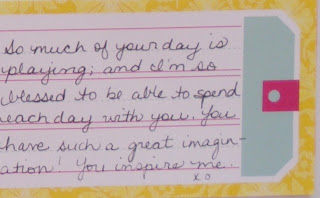 So much of your day is
playing; and I'm so
blessed to be able to spend
each day with you. You
have such a great imagin-
ation! You inspire me.
xo